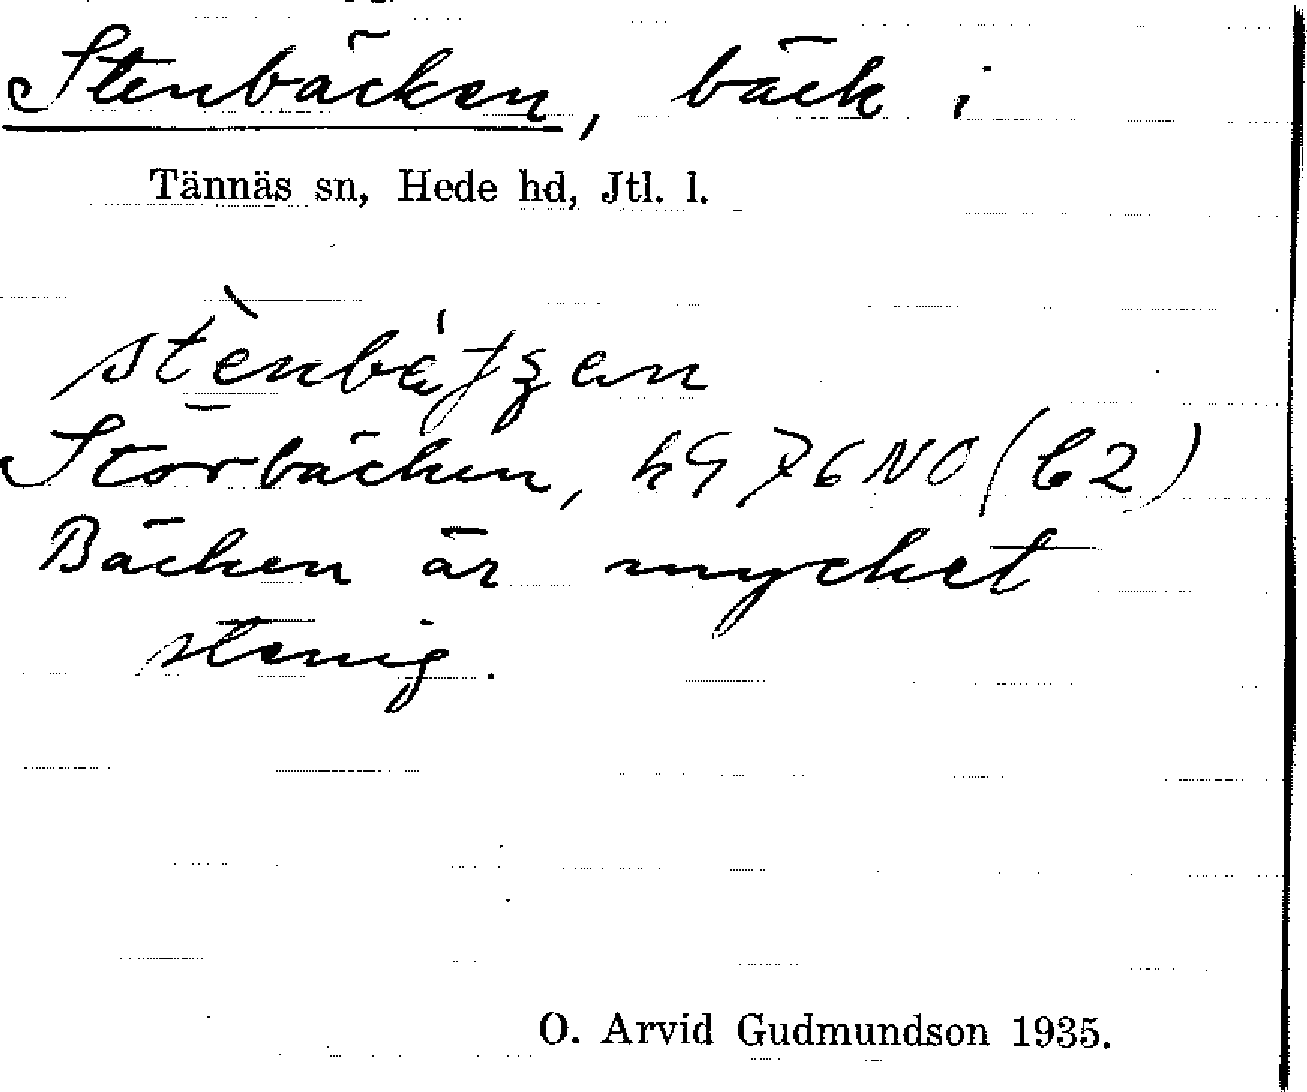 Stenbäcken, bäck i
Tännäs sn, Hede hd, Jtl. l.
Storbäcken, hG 76 NO (C2)
Bäcken är mycket
stenig.
O. Arvid Gudmundson 1935.